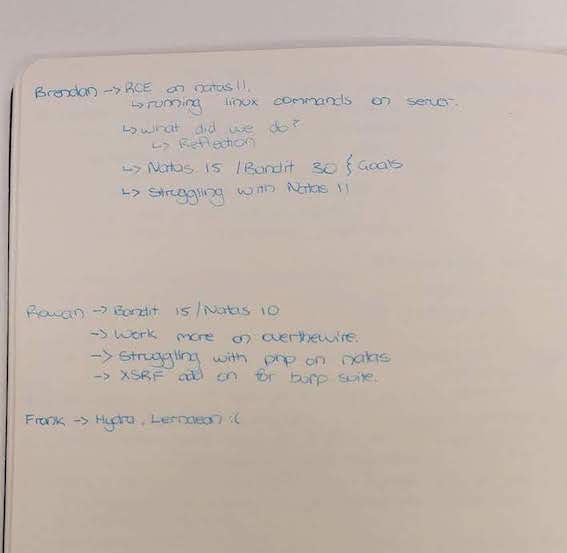 Brendan -> RCE on natas 11.
↳ running linux commands on server.
↳ what did we do?
↳ Reflection
↳ Natas 15 / Bandit 30 } Goals
↳ Struggling with Natas 11
Rowan -> Bandit 15 / Natas 10
-> Work more on overthewire.
-> Struggling with php on natas
-> XSRF add on for burp suite.
Frank -> Hydra, Lernaean :(